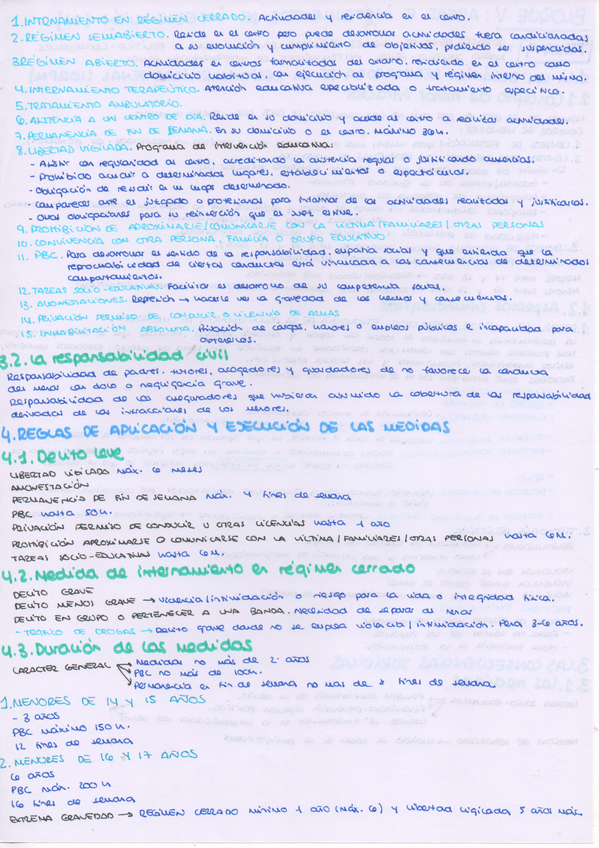 1. INTERNAMIENTO EN RÉGIMEN CERRADO. Actividades y residencia en el centro.
2. RÉGIMEN SEMIABIERTO. Reside en el centro pero puede desarrollar actividades fuera condicionadas
a su evolución y cumplimiento de objetivos, pudiendo ser suspendidas.
3. RÉGIMEN ABIERTO. Actividades en centros normalizados del entorno, residiendo en el centro como
domicilio habitual, con ejecución al programa y régimen interno del mismo.
4. INTERNAMIENTO TERAPEÚTICO. Atención educativa especializada o tratamiento específico.
5. TRATAMIENTO AMBULATORIO.
6. ASISTENCIA A UN CENTRO DE DÍA. Reside en su domicilio y acude al centro a realizar actividades.
7. PERMANENCIA DE FIN DE SEMANA. En su domicilio o el centro. Máximo 36H.
8. LIBERTAD VIGILADA. Programa de intervención educativa:
- Asistir con regularidad al centro, acreditando la asistencia regular o justificando ausencias.
- Prohibido acudir a determinados lugares, establecimientos o espectáculos.
- Obligación de residir en un lugar determinado.
- Comparecer ante el juzgado o profesional para informar de las actividades realizadas y justificarlas.
- Otras obligaciones para su reinserción que el juez estime.
9. PROHIBICIÓN DE APROXIMARSE/COMUNICARSE CON LA VÍCTIMA/FAMILIARES/OTRAS PERSONAS
10. CONVIVENCIA CON OTRA PERSONA, FAMILIA O GRUPO EDUCATIVO
11. PBC. Para desarrollar el sentido de la responsabilidad, empatía social y que entienda que la
reprochabilidad de ciertas conductas está vinculada a las consecuencias de determinados
comportamientos.
12. TAREAS SOCIO-EDUCATIVAS. Facilitar el desarrollo de su competencia social.
13. AMONESTACIONES. Reprensión → hacerle ver la gravedad de los hechos y consecuencias.
14. PRIVACIÓN PERMISO DE CONDUCIR O LICENCIA DE ARMAS
15. INHABILITACIÓN ABSOLUTA. Privación de cargos, honores o empleos públicos e incapacidad para
obtenerlos.
3.2. La responsabilidad civil
Responsabilidad de padres, tutores, acogedores y guardadores de no favorecer la conducta
del menor con dolo o negligencia grave.
Responsabilidad de los aseguradores que hubieran asumido la cobertura de las responsabilidad
derivadas de las infracciones de los menores.
4. REGLAS DE APLICACIÓN Y EJECUCIÓN DE LAS MEDIDAS
4.1. Delito leve
LIBERTAD VIGILADA máx. 6 meses
AMONESTACIÓN
PERMANENCIA DE FIN DE SEMANA máx. 4 fines de semana
PBC hasta 50H.
PRIVACIÓN PERMISO DE CONDUCIR U OTRAS LICENCIAS hasta 1 año
PROHIBICIÓN APROXIMARSE O COMUNICARSE CON LA VÍCTIMA/FAMILIARES/OTRAS PERSONAS hasta 6M.
TAREAS SOCIO-EDUCATIVAS hasta 6M.
4.2. Medida de internamiento en régimen cerrado
DELITO GRAVE
DELITO MENOS GRAVE → Violencia/intimidación o riesgo para la vida o integridad física.
DELITO EN GRUPO O PERTENECER A UNA BANDA. Necesidad de separar al menor
- TRÁFICO DE DROGAS → Delito grave donde no se emplea violencia/intimidación. Pena 3-6 años.
4.3. Duración de las medidas
CARACTER GENERAL
Medidas no más de 2 años
PBC no más de 100H.
Permanencia en fin de semana no más de 8 fines de semana.
1. MENORES DE 14 Y 15 AÑOS
- 3 años
PBC máximo 150H.
12 fines de semana
2. MENORES DE 16 Y 17 AÑOS
6 años
PBC máx. 200H
16 fines de semana
EXTREMA GRAVEDAD → RÉGIMEN CERRADO mínimo 1 año (máx. 6) y libertad vigilada 5 años máx.